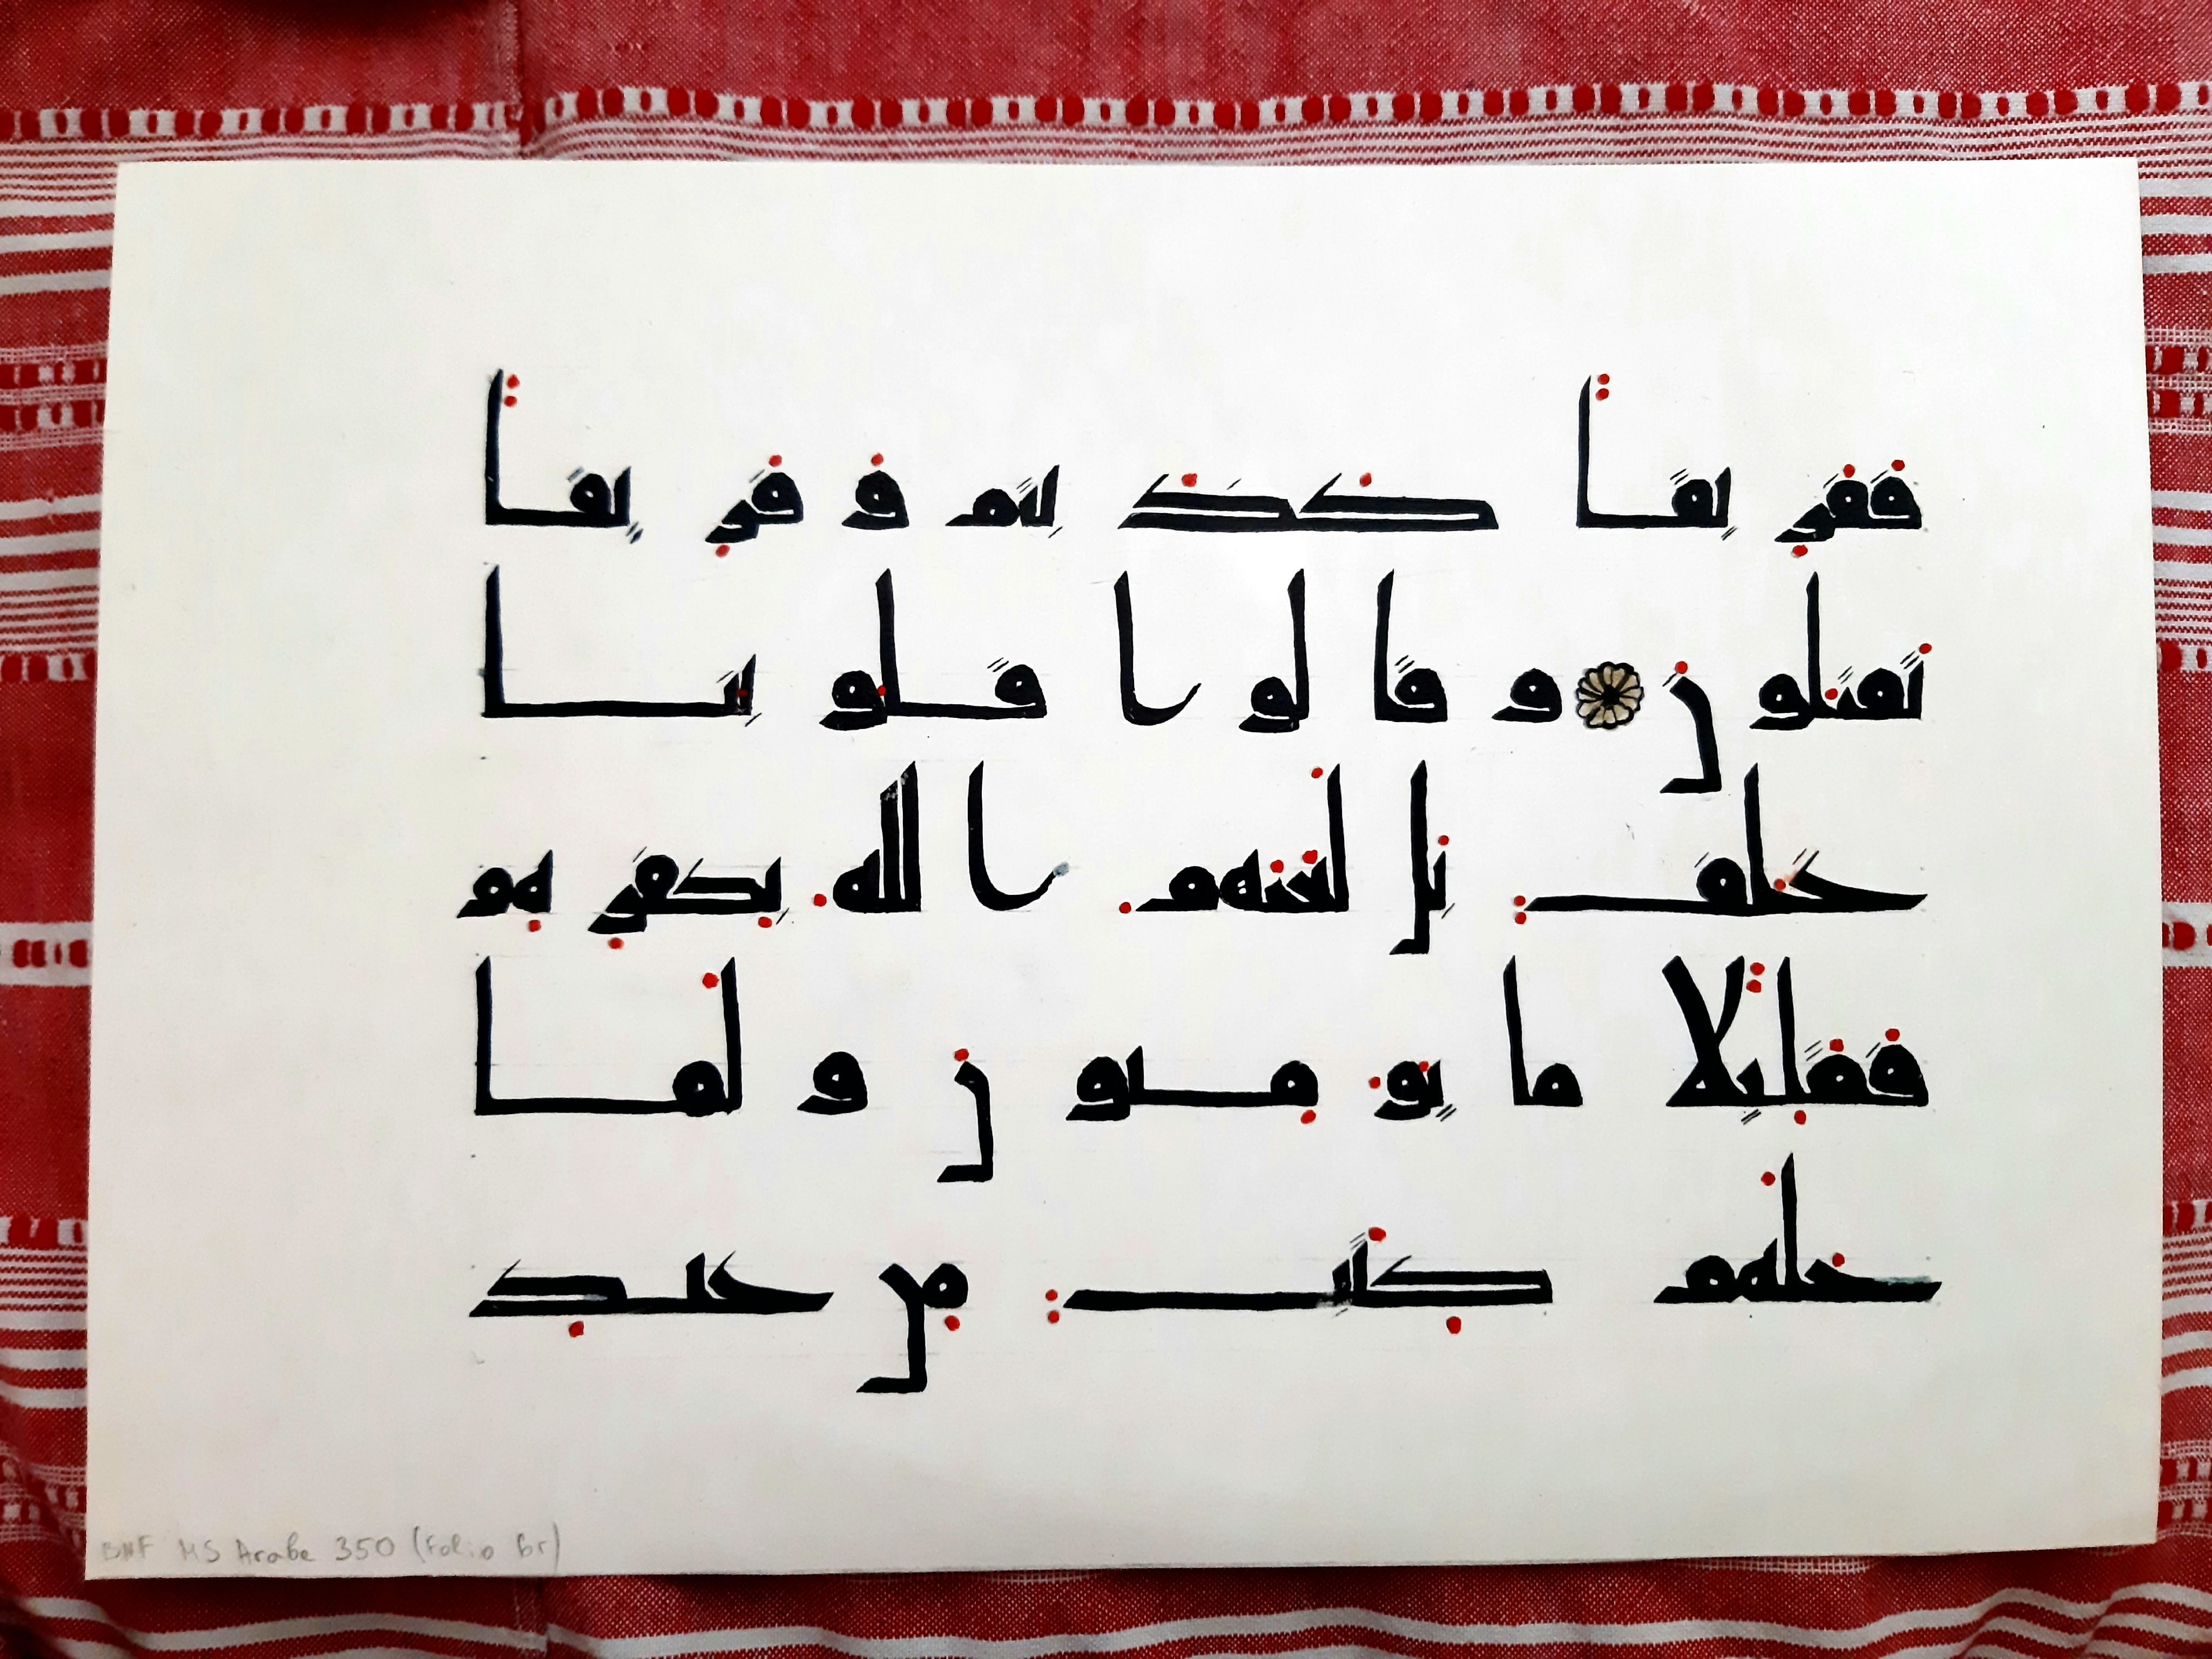 ففريقا كذبتم وفريقا
تقتلون وقالوا قلوبنا
غلف بل لعنهم الله بكفرهم
فقليلا ما يومنون ولما
جاهم كتب من عند
BNF MS Arabe 350 (Folio 6r)